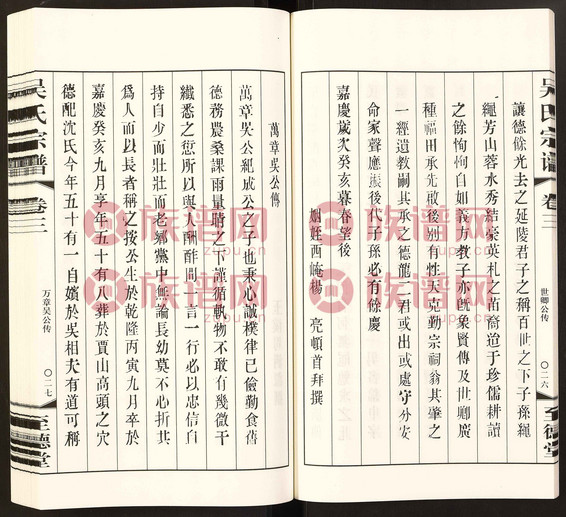 吴氏宗谱
卷三
世卿公传
〇二六
至德堂
讓德餘光去之延陵君子之稱百世之下子孫繩
繩芳山蓉水秀結豪英札之苗裔迨于珍儒耕讀
之餘恂恂自如義方教子亦旣象賢傳及世卿廣
種福田承先啟後别有性天克勤宗祠翁其肇之
一經遺教嗣其承之德龍二君或出或處守分安
命家聲應振後代子孫必有餘慶
嘉慶歲次癸亥暮春望後
姻姪西崦楊 亮頓首拜撰
萬章吳公傳
萬章吳公紀成公之子也秉心誠樸律已儉勤食舊
德務農桑課雨量晴之下謹循執物不敢有幾微干
纖悉之愆所以與人酬酢間一言一行必以忠信自
持自少而壯壯而老鄉黨中無論長幼莫不心折其
爲人而以長者稱之按公生於乾隆丙寅九月卒於
嘉慶癸亥九月享年五十有八葬於賈山高頭之穴
德配沈氏今年五十有一自嬪於吳相夫有道可稱
吴氏宗谱
卷三
万章吴公传
〇二七
至德堂
族谱网
zupu.cn
族谱网
zupu.cn
族谱网
zupu.cn
族谱网
zupu.cn